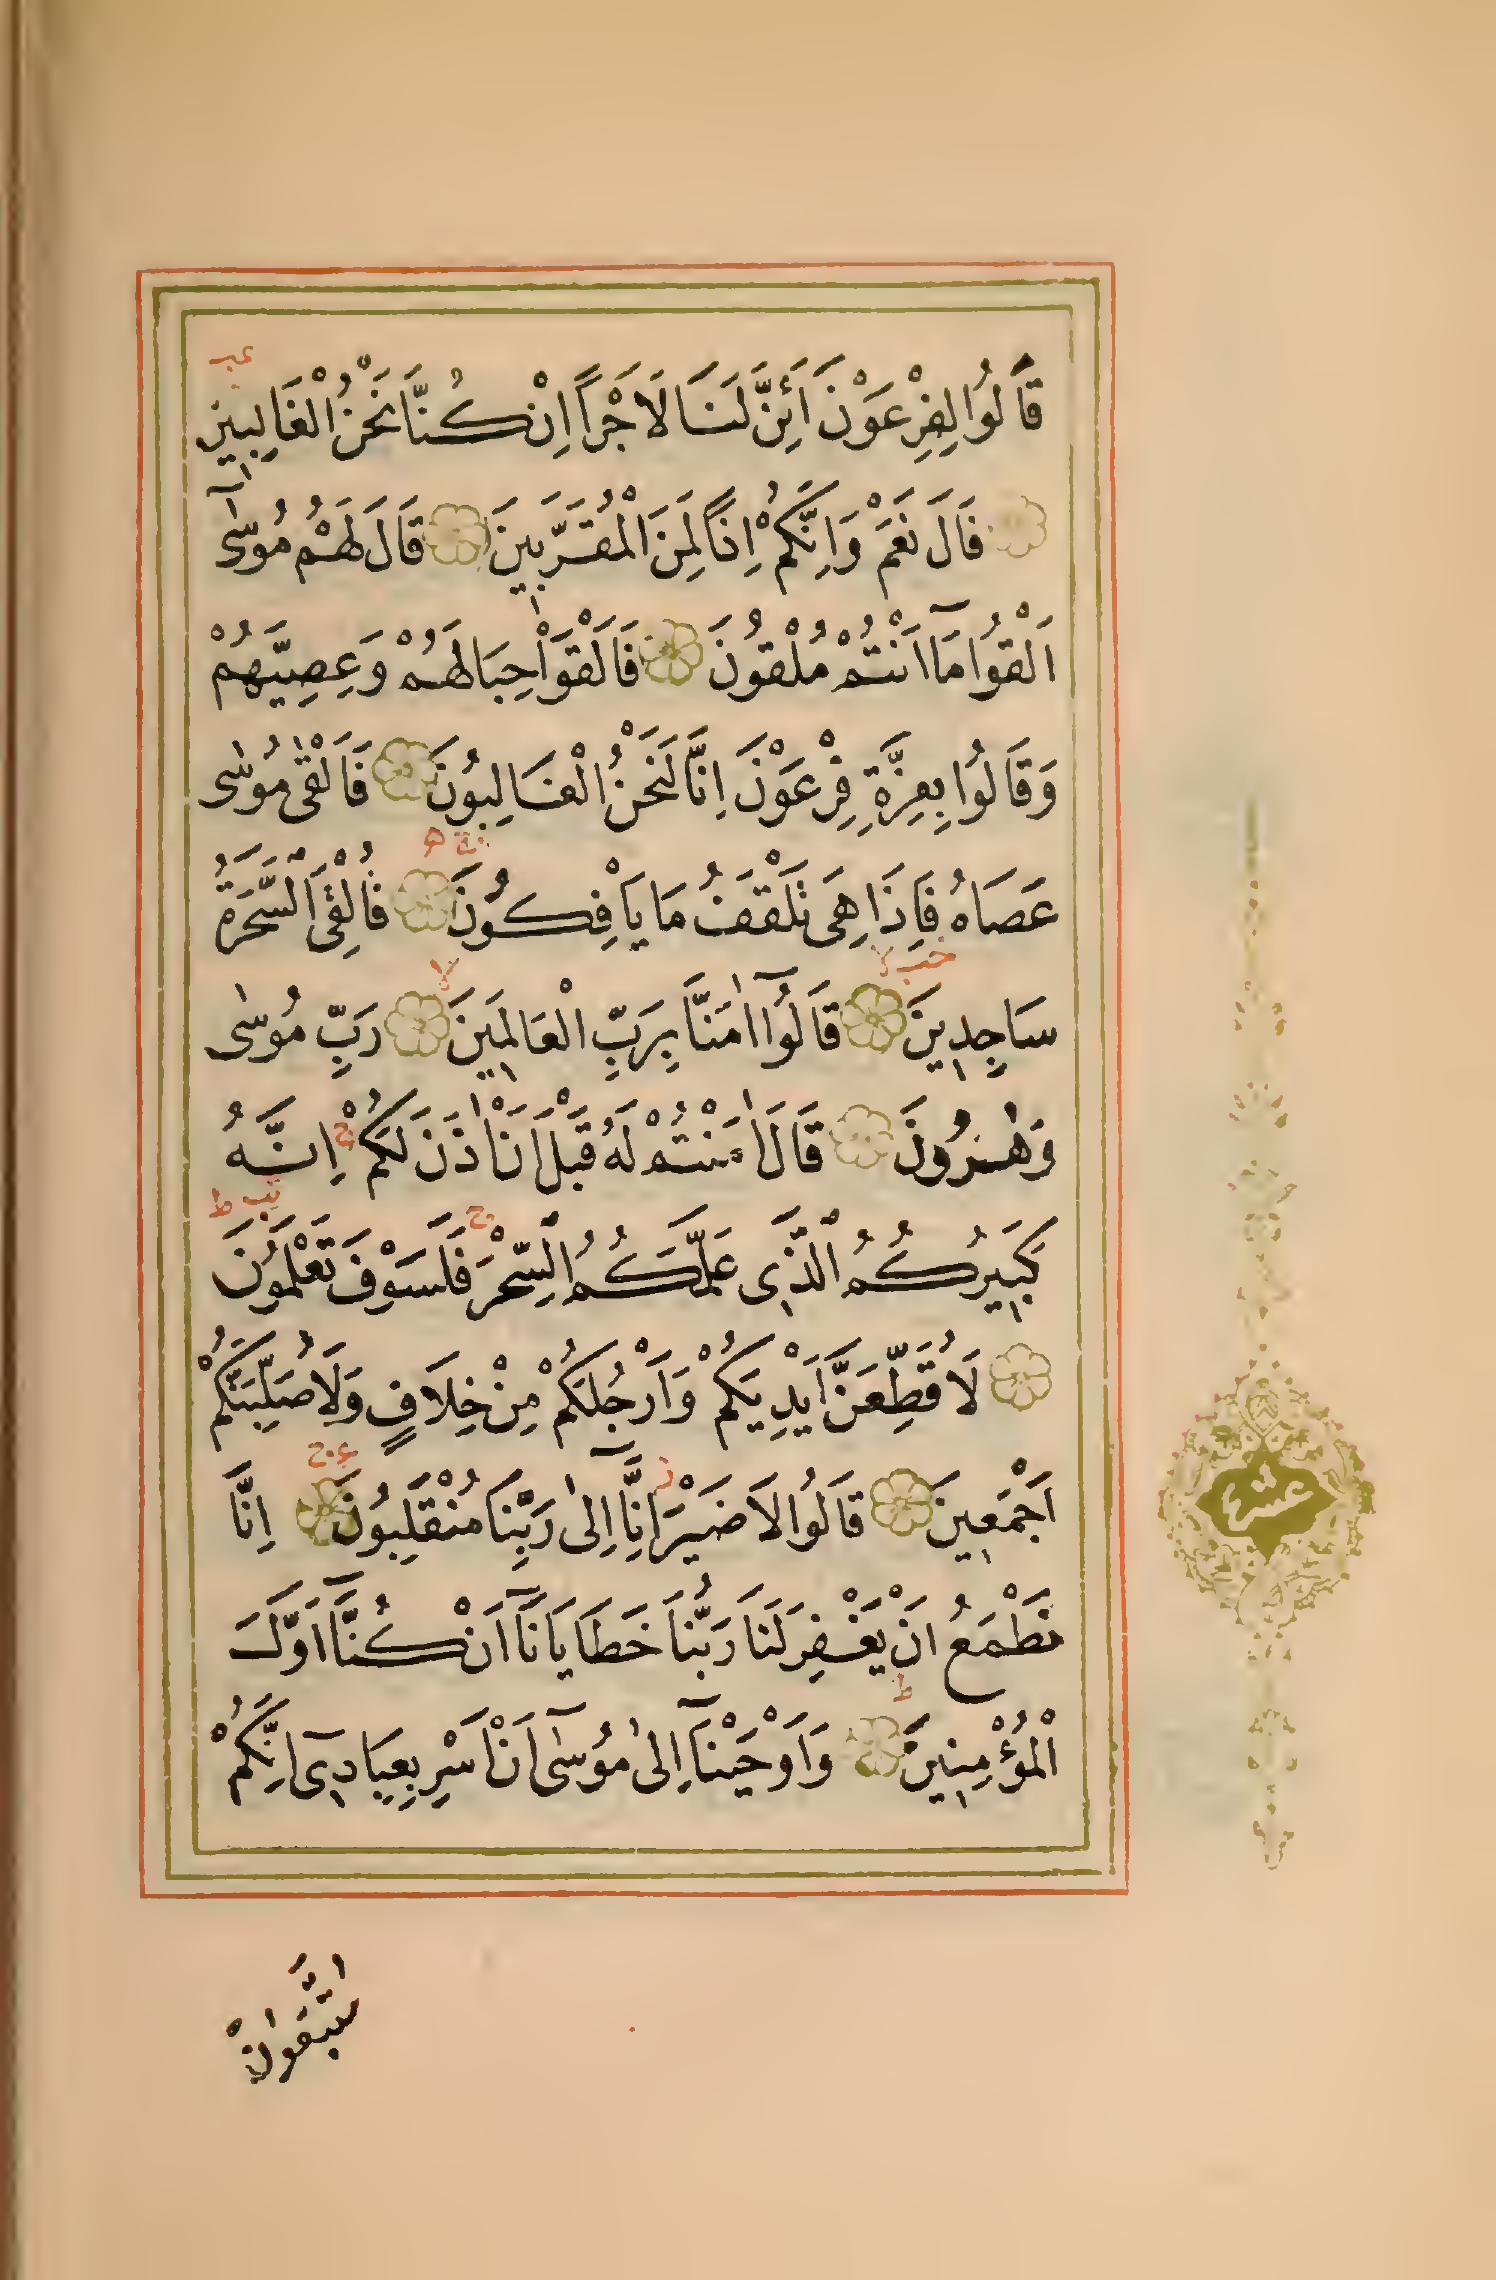 قَالُوا لِفِرْعَوْنَ اَئِنَّ لَنَا لَاَجْرًا اِنْ كُنَّا نَحْنُ الْغَالِبِينَ
قَالَ نَعَمْ وَاِنَّكُمْ اِذًا لَمِنَ الْمُقَرَّبِينَ قَالَ لَهُمْ مُوسٰٓى
اَلْقُوا مَٓا اَنْتُمْ مُلْقُونَ فَاَلْقَوْا حِبَالَهُمْ وَعِصِيَّهُمْ
وَقَالُوا بِعِزَّةِ فِرْعَوْنَ اِنَّا لَنَحْنُ الْغَالِبُونَ فَاَلْقٰى مُوسٰى
عَصَاهُ فَاِذَا هِىَ تَلْقَفُ مَا يَاْفِكُونَ فَاُلْقِىَ السَّحَرَةُ
سَاجِدِينَ قَالُٓوا اٰمَنَّا بِرَبِّ الْعَالَمِينَ رَبِّ مُوسٰى
وَهٰرُونَ قَالَ اٰمَنْتُمْ لَهُ قَبْلَ اَنْ اٰذَنَ لَكُمْ اِنَّهُ
لَكَبِيرُكُمُ الَّذِى عَلَّمَكُمُ السِّحْرَ فَلَسَوْفَ تَعْلَمُونَ
لَاُقَطِّعَنَّ اَيْدِيَكُمْ وَاَرْجُلَكُمْ مِنْ خِلَافٍ وَلَاُصَلِّبَنَّكُمْ
اَجْمَعِينَ قَالُوا لَا ضَيْرَ اِنَّٓا اِلٰى رَبِّنَا مُنْقَلِبُونَ اِنَّا
نَطْمَعُ اَنْ يَغْفِرَ لَنَا رَبُّنَا خَطَايَانَٓا اَنْ كُنَّٓا اَوَّلَ
الْمُؤْمِنِينَ وَاَوْحَيْنَٓا اِلٰى مُوسٰٓى اَنْ اَسْرِ بِعِبَادِٓى اِنَّكُمْ
عشر